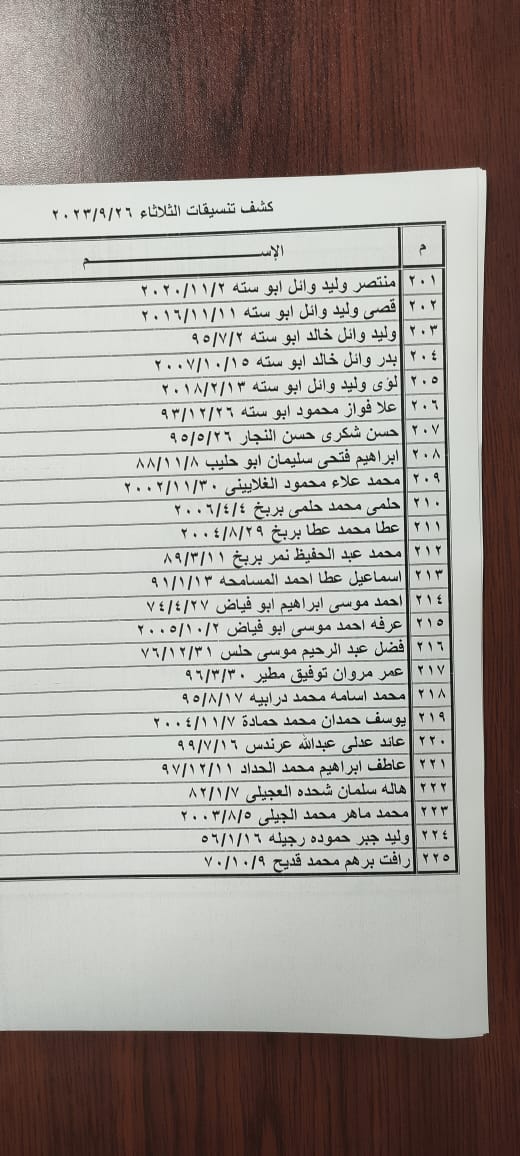 كشف تنسيقات الثلاثاء ٢٠٢٣/٩/٢٦
م الإســــــــم
٢٠١ منتصر وليد وائل ابو سته ٢٠٢٠/١١/٢
٢٠٢ قصى وليد وائل ابو سته ٢٠١٦/١١/١١
٢٠٣ وليد وائل خالد ابو سته ٩٥/٧/٢
٢٠٤ بدر وائل خالد ابو سته ٢٠٠٧/١٠/١٥
٢٠٥ لؤى وليد وائل ابو سته ٢٠١٨/٢/١٣
٢٠٦ علا فواز محمود ابو سته ٩٣/١٢/٢٦
٢٠٧ حسن شكرى حسن النجار ٩٥/٥/٢٦
٢٠٨ ابراهيم فتحى سليمان ابو حليب ٨٨/١١/٨
٢٠٩ محمد علاء محمود الغلايينى ٢٠٠٢/١١/٣٠
٢١٠ حلمى محمد حلمى بربخ ٢٠٠٦/٤/٤
٢١١ عطا محمد عطا بربخ ٢٠٠٤/٨/٢٩
٢١٢ محمد عبد الحفيظ نمر بربخ ٨٩/٣/١١
٢١٣ اسماعيل عطا احمد المسامحه ٩١/١/١٣
٢١٤ احمد موسى ابراهيم ابو فياض ٧٤/٤/٢٧
٢١٥ عرفه احمد موسى ابو فياض ٢٠٠٥/١٠/٢
٢١٦ فضل عبد الرحيم موسى حلس ٧٦/١٢/٣١
٢١٧ عمر مروان توفيق مطير ٩٦/٣/٣٠
٢١٨ محمد اسامه محمد درابيه ٩٥/٨/١٧
٢١٩ يوسف حمدان محمد حمادة ٢٠٠٤/١١/٧
٢٢٠ عائد عدلى عبدالله عرندس ٩٩/٧/١٦
٢٢١ عاطف ابراهيم محمد الحداد ٩٧/١٢/١١
٢٢٢ هاله سلمان شحده العجيلى ٨٢/١/٧
٢٢٣ محمد ماهر محمد الجيلى ٢٠٠٣/٨/٥
٢٢٤ وليد جبر حموده رجيله ٥٦/١/١٦
٢٢٥ رافت برهم محمد قديح ٧٠/١٠/٩